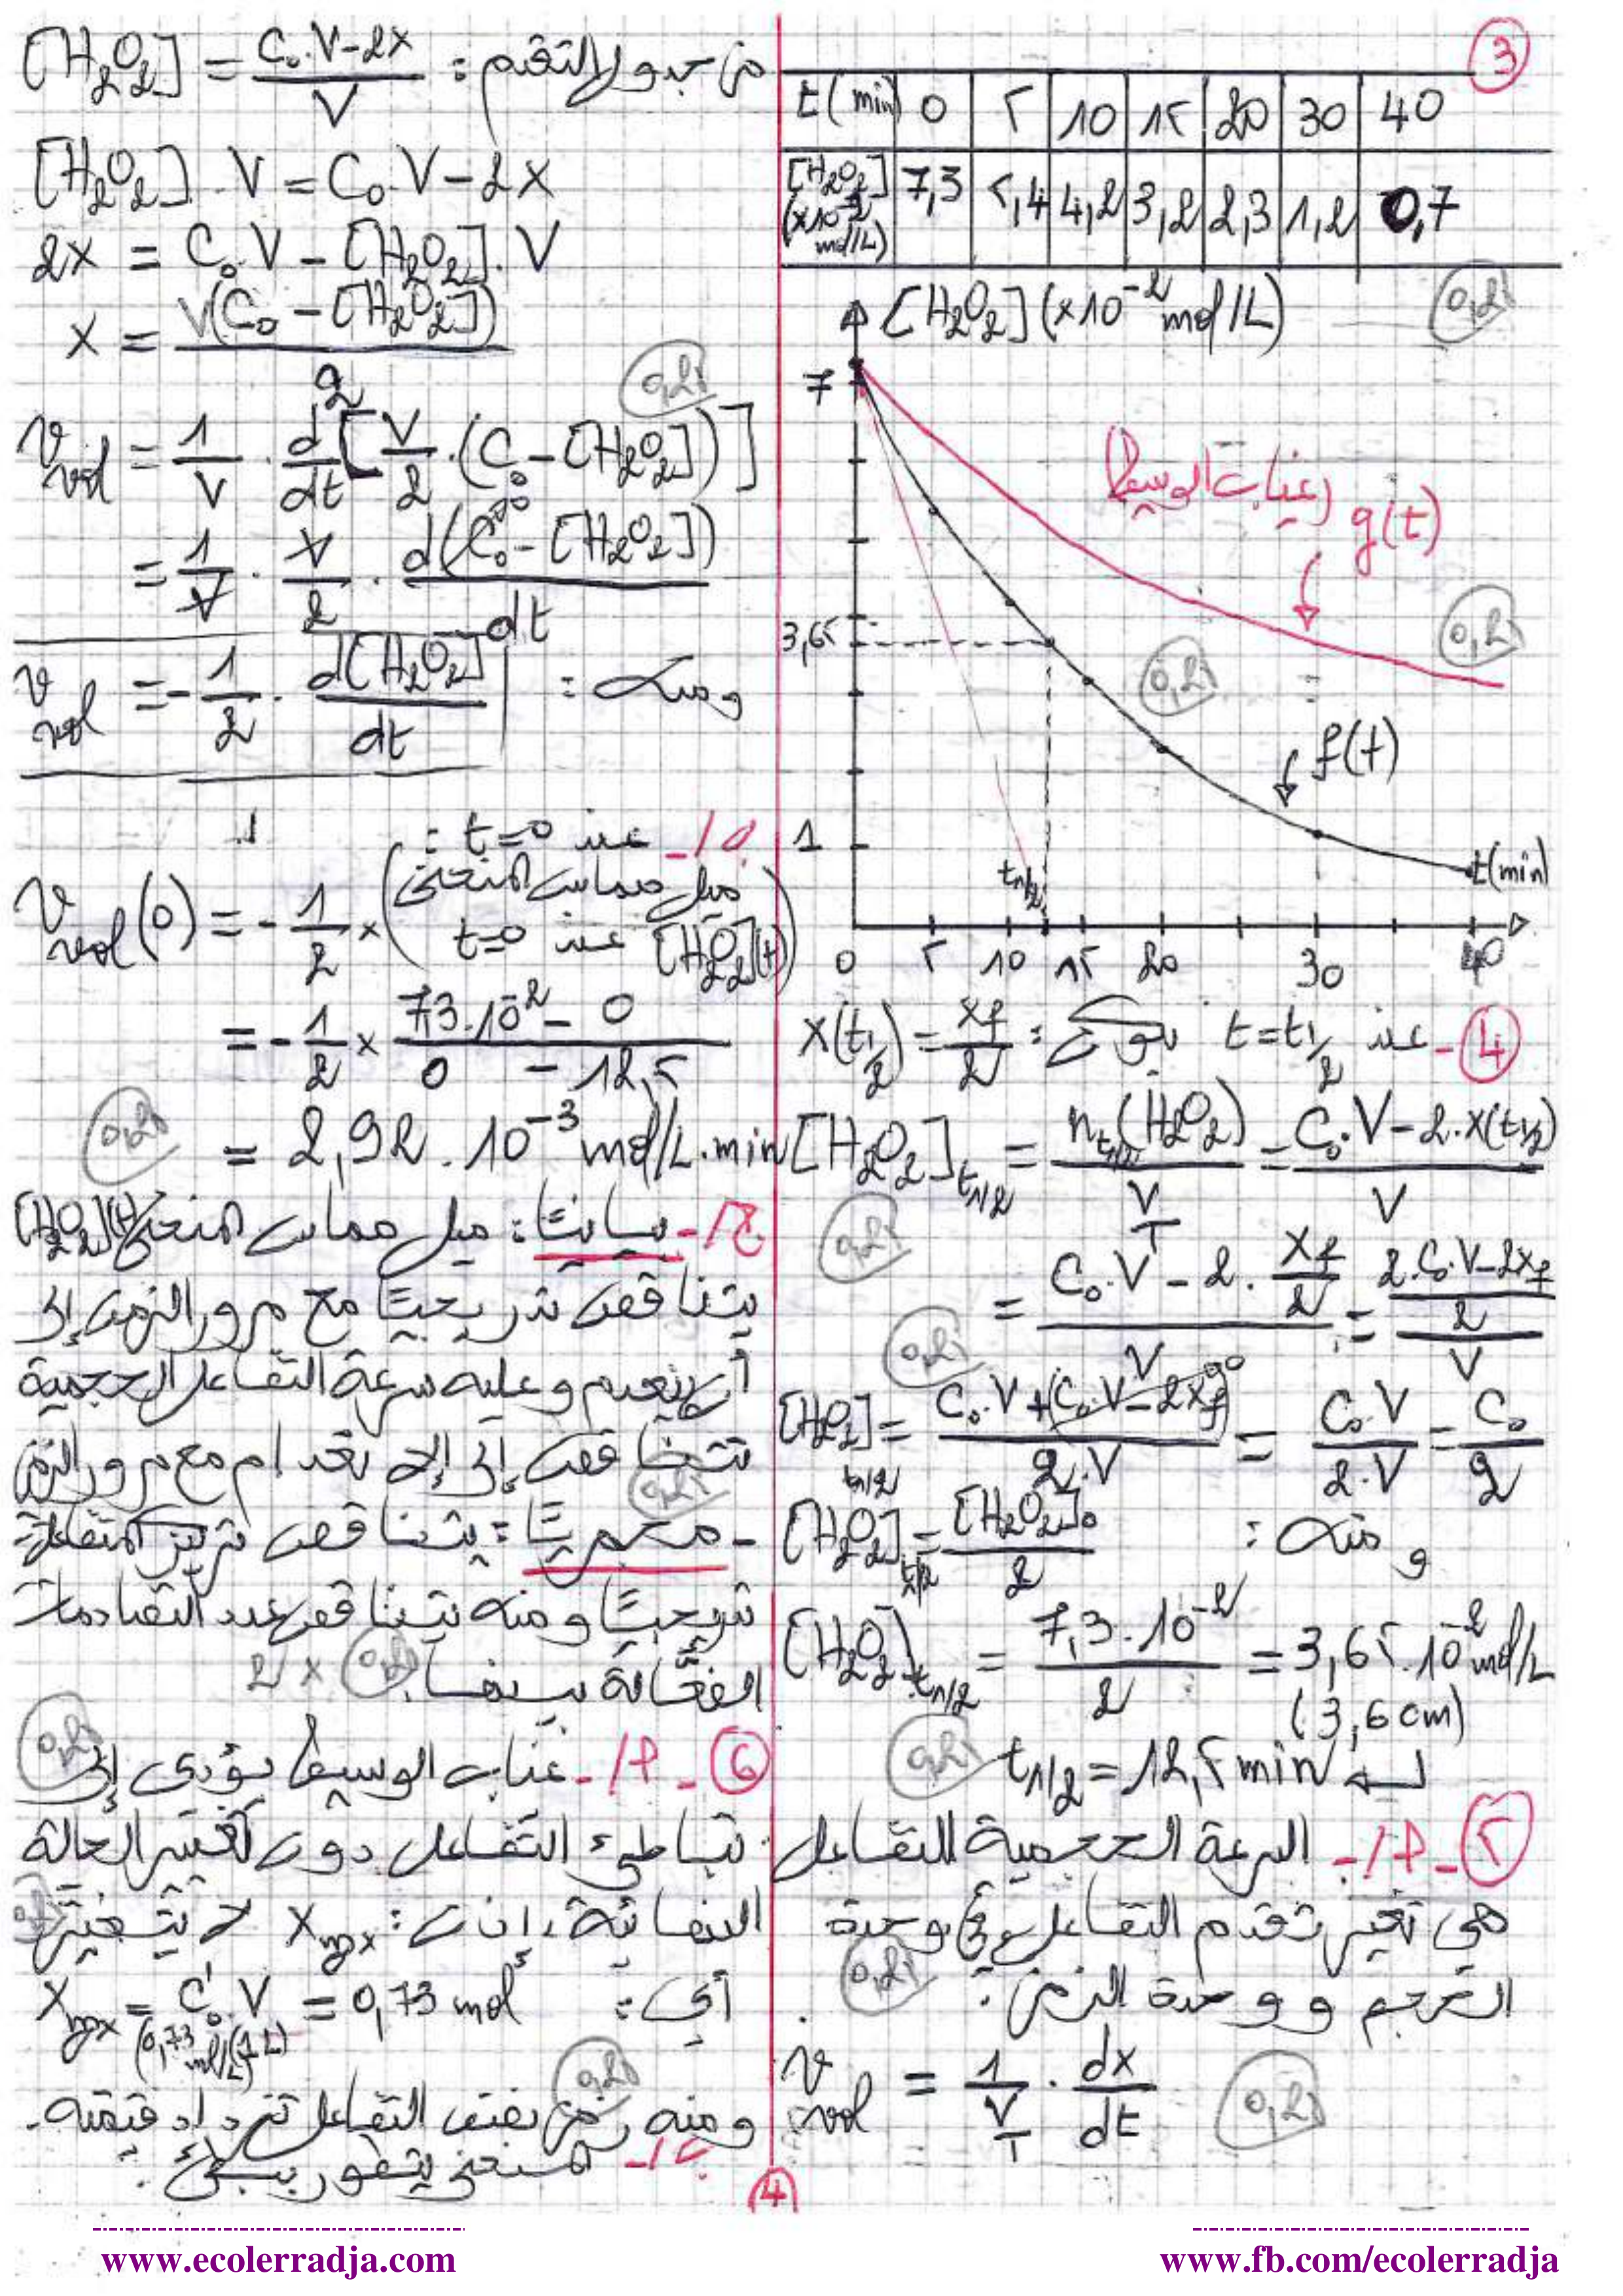 ③
t(min) 0 5 10 15 20 30 40
[H₂O₂] (×10⁻² mol/L) 7,3 5,4 4,2 3,2 2,3 1,2 0,7
0,25
[H₂O₂] (×10⁻² mol/L)
7
(غياب الوسيط) g(t)
0,25
3,65
0,25
f(t)
1
t1/2
t(min)
0 5 10 15 20 30 40
④- عند t = t1/2 يكون : x(t1/2) = xf/2
[H₂O₂]t1/2 = nt1/2(H₂O₂)/VT = (C₀.V - 2.x(t1/2))/V
0,25
= (C₀.V - 2.xf/2)/V = ((2.C₀.V - 2xf)/2)/V
0,25
[H₂O₂]t1/2 = (C₀.V + (C₀.V - 2xf))/2.V = C₀.V/2.V = C₀/2
ومنه :
[H₂O₂]t1/2 = [H₂O₂]₀/2
[H₂O₂]t1/2 = 7,3.10⁻²/2 = 3,65.10⁻² mol/L
(3,6 cm)
t1/2 = 12,5 min
0,25
⑤- أ/- السرعة الحجمية للتفاعل
هي تغير تقدم التفاعل في وحدة
الحجم و وحدة الزمن :
0,25
vvol = 1/VT . dx/dt
0,25
من جدول التقدم : [H₂O₂] = (C₀.V - 2x)/V
[H₂O₂].V = C₀.V - 2x
2x = C₀.V - [H₂O₂].V
x = V(C₀ - [H₂O₂])/2
0,25
vvol = 1/V . d/dt [V/2 . (C₀ - [H₂O₂])]
= 1/V . V/2 . d(C₀ - [H₂O₂])/dt
ومنه : vvol = - 1/2 . d[H₂O₂]/dt
ب/- عند t=0 :
vvol(0) = - 1/2 × (ميل مماس المنحنى [H₂O₂](t) عند t=0)
= - 1/2 × (7,3.10⁻² - 0)/(0 - 12,5)
0,25
= 2,92.10⁻³ mol/L.min
ج/- بيانيا : ميل مماس المنحنى [H₂O₂](t)
يتناقص تدريجيا مع مرور الزمن إلى
أن ينعدم و عليه سرعة التفاعل الحجمية
تتناقص إلى الانعدام مع مرور الزمن
0,25
- مجهريا : يتناقص تركيز المتفاعلات
تدريجيا و منه يتناقص عدد التصادمات
الفعالة بينها. 0,25 × 2
⑥- أ/- غياب الوسيط يؤدي إلى
0,25
تباطئ التفاعل دون تغيير الحالة
النهائية، إذن : xmax لا يتغير
أي : xmax = C'₀.V = 0,73 mol
(0,73 mol/L) (1L)
0,25
ومنه زمن نصف التفاعل تزداد قيمته.
ب/- المنحنى يتطور ببطئ.
④
www.ecolerradja.com
www.fb.com/ecolerradja